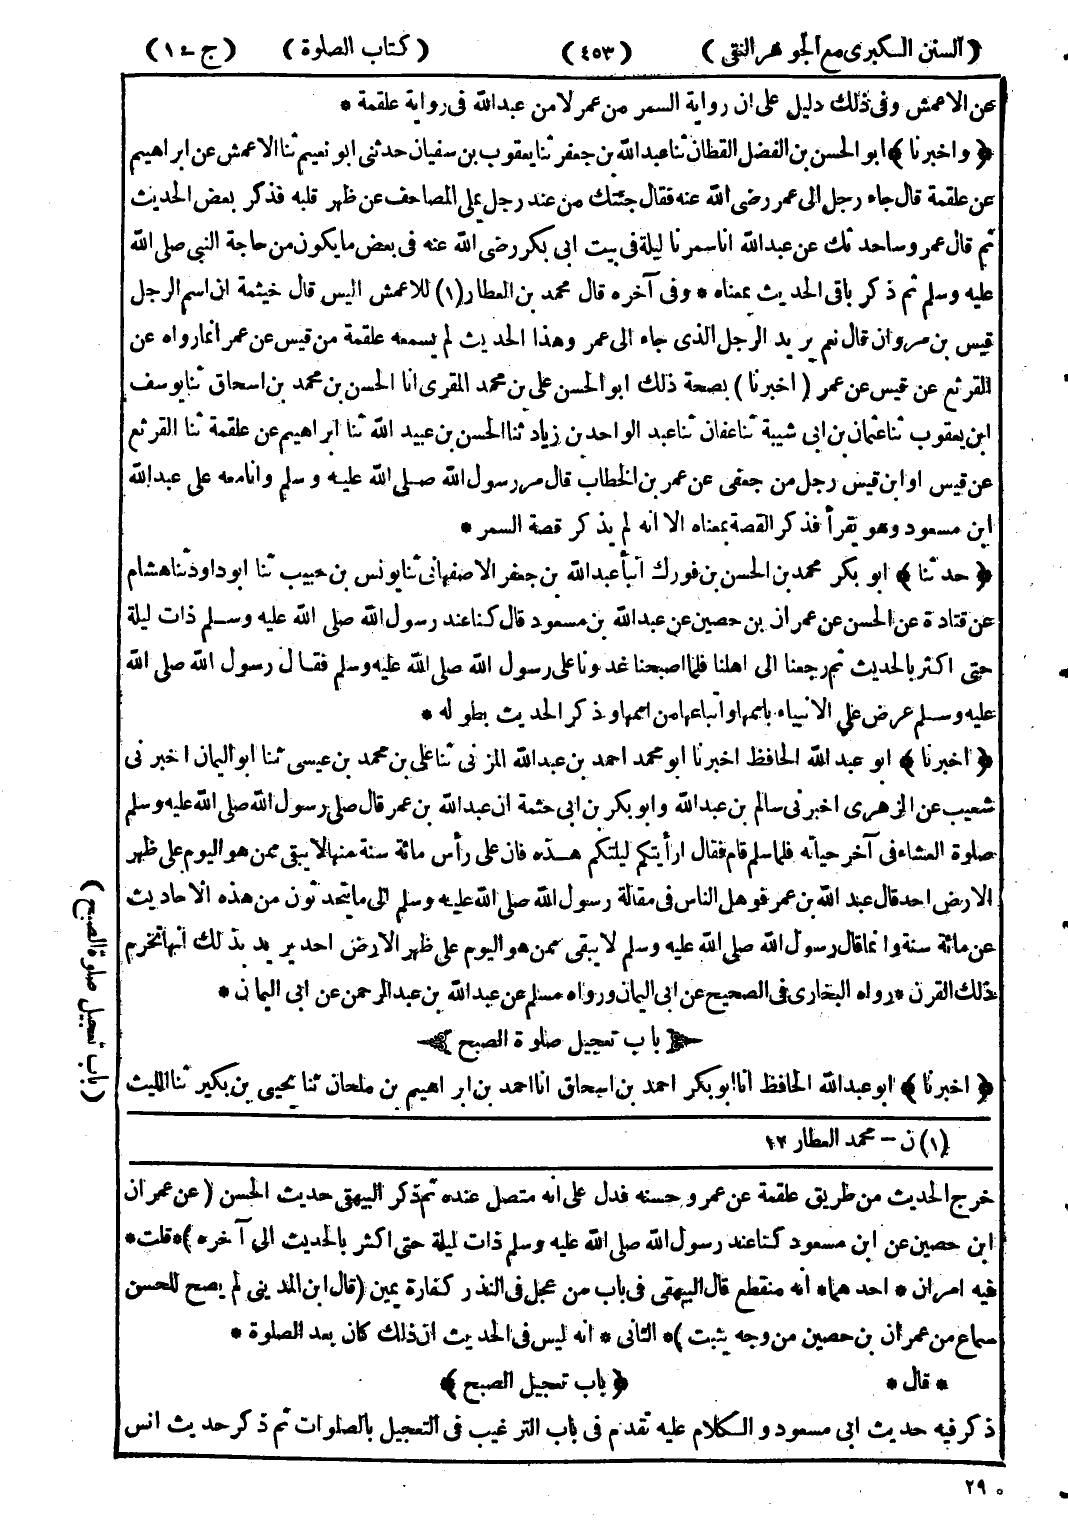 (السنن الكبرى مع الجوهر النقى) (٤٥٣) (كتاب الصلوة) (ج - ١)
عن الاعمش وفى ذلك دليل على ان رواية السمر من عمر لا من عبدالله فى رواية علقمة *
﴿ واخبرنا ﴾ ابو الحسن بن الفضل القطان ثنا عبدالله بن جعفر ثنا يعقوب بن سفيان حدثنى ابو نعيم ثنا الاعمش عن ابراهيم
عن علقمة قال جاء رجل الى عمر رضى الله عنه فقال جئتك من عند رجل يملى المصاحف عن ظهر قلبه فذكر بعض الحديث
ثم قال عمر وساحدثك عن عبدالله انا سمرنا ليلة فى بيت ابى بكر رضى الله عنه فى بعض ما يكون من حاجة النبى صلى الله
عليه وسلم ثم ذكر باقى الحديث بمعناه * وفى آخره قال محمد بن العطار (١) للاعمش اليس قال خيثمة ان اسم الرجل
قيس بن مروان قال نعم يريد الرجل الذى جاء الى عمر وهذا الحديث لم يسمعه علقمة من قيس عن عمر انما رواه عن
القرثع عن قيس عن عمر ( اخبرنا ) بصحة ذلك ابو الحسن على بن محمد المقرى انا الحسن بن محمد بن اسحاق ثنا يوسف
ابن يعقوب ثنا عثمان بن ابى شيبة ثنا عفان ثنا عبد الواحد بن زياد ثنا الحسن بن عبيد الله ثنا ابراهيم عن علقمة ثنا القرثع
عن قيس او ابن قيس رجل من جعفى عن عمر بن الخطاب قال مر رسول الله صلى الله عليه وسلم وانا معه على عبدالله
ابن مسعود وهو يقرأ فذكر القصة بمعناه الا انه لم يذكر قصة السمر *
﴿ حدثنا ﴾ ابو بكر محمد بن الحسن بن فورك انبأ عبدالله بن جعفر الاصفهانى ثنا يونس بن حبيب ثنا ابو داود ثنا هشام
عن قتادة عن الحسن عن عمران بن حصين عن عبدالله بن مسعود قال كنا عند رسول الله صلى الله عليه وسلم ذات ليلة
حتى اكثر بالحديث ثم رجعنا الى اهلنا فلما اصبحنا غدونا على رسول الله صلى الله عليه وسلم فقال رسول الله صلى الله
عليه وسلم عرض على الانبياء باممها واتباعها من اممها وذكر الحديث بطوله *
﴿ اخبرنا ﴾ ابو عبد الله الحافظ اخبرنا ابو محمد احمد بن عبدالله المزنى ثنا على بن محمد بن عيسى ثنا ابو اليمان اخبرنى
شعيب عن الزهرى اخبرنى سالم بن عبدالله وابو بكر بن ابى حثمة ان عبدالله بن عمر قال صلى رسول الله صلى الله عليه وسلم
صلوة العشاء فى آخر حياته فلما سلم قام فقال ارأيتكم ليلتكم هذه فان على رأس مائة سنة منها لا يبقى ممن هو اليوم على ظهر
الارض احد قال عبد الله بن عمر فوهل الناس فى مقالة رسول الله صلى الله عليه وسلم الى ما يتحدثون من هذه الاحاديث
عن مائة سنة وانما قال رسول الله صلى الله عليه وسلم لا يبقى ممن هو اليوم على ظهر الارض احد يريد بذلك انها تخرم
ذلك القرن * رواه البخارى فى الصحيح عن ابى اليمان ورواه مسلم عن عبدالله بن عبدالرحمن عن ابى اليمان *
﴿ باب تعجيل صلوة الصبح ﴾
﴿ اخبرنا ﴾ ابو عبدالله الحافظ انا ابو بكر احمد بن اسحاق انا احمد بن ابراهيم بن ملحان ثنا يحيى بن بكير ثنا الليث
(باب تعجيل صلوة الصبح)
(١) ن – محمد العطار ١٢
خرج الحديث من طريق علقمة عن عمر وحسنه فدل على انه متصل عنده ثم ذكر البيهقى حديث الحسن ( عن عمران
ابن حصين عن ابن مسعود كنا عند رسول الله صلى الله عليه وسلم ذات ليلة حتى اكثر بالحديث الى آخره )* قلت *
فيه امران * احدهما * انه منقطع قال البيهقى فى باب من جعل فى النذر كفارة يمين (قال ابن المدينى لم يصح للحسن
سماع من عمران بن حصين من وجه يثبت )* الثانى * انه ليس فى الحديث ان ذلك كان بعد الصلوة *
* قال * ﴿ باب تعجيل الصبح ﴾
ذكر فيه حديث ابى مسعود والكلام عليه تقدم فى باب الترغيب فى التعجيل بالصلوات ثم ذكر حديث انس
٢٩٠